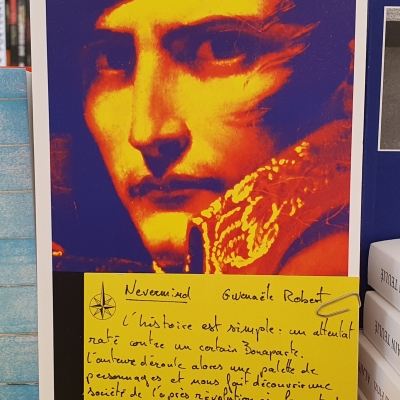 Nevermind Gwenaële Robert
L'histoire est simple : un attentat
raté contre un certain Bonaparte.
L'auteure déroule alors une palette de
personnages et nous fait découvrir une
société de l'après révolution
AIN TEULÉ
AIN TEULÉ